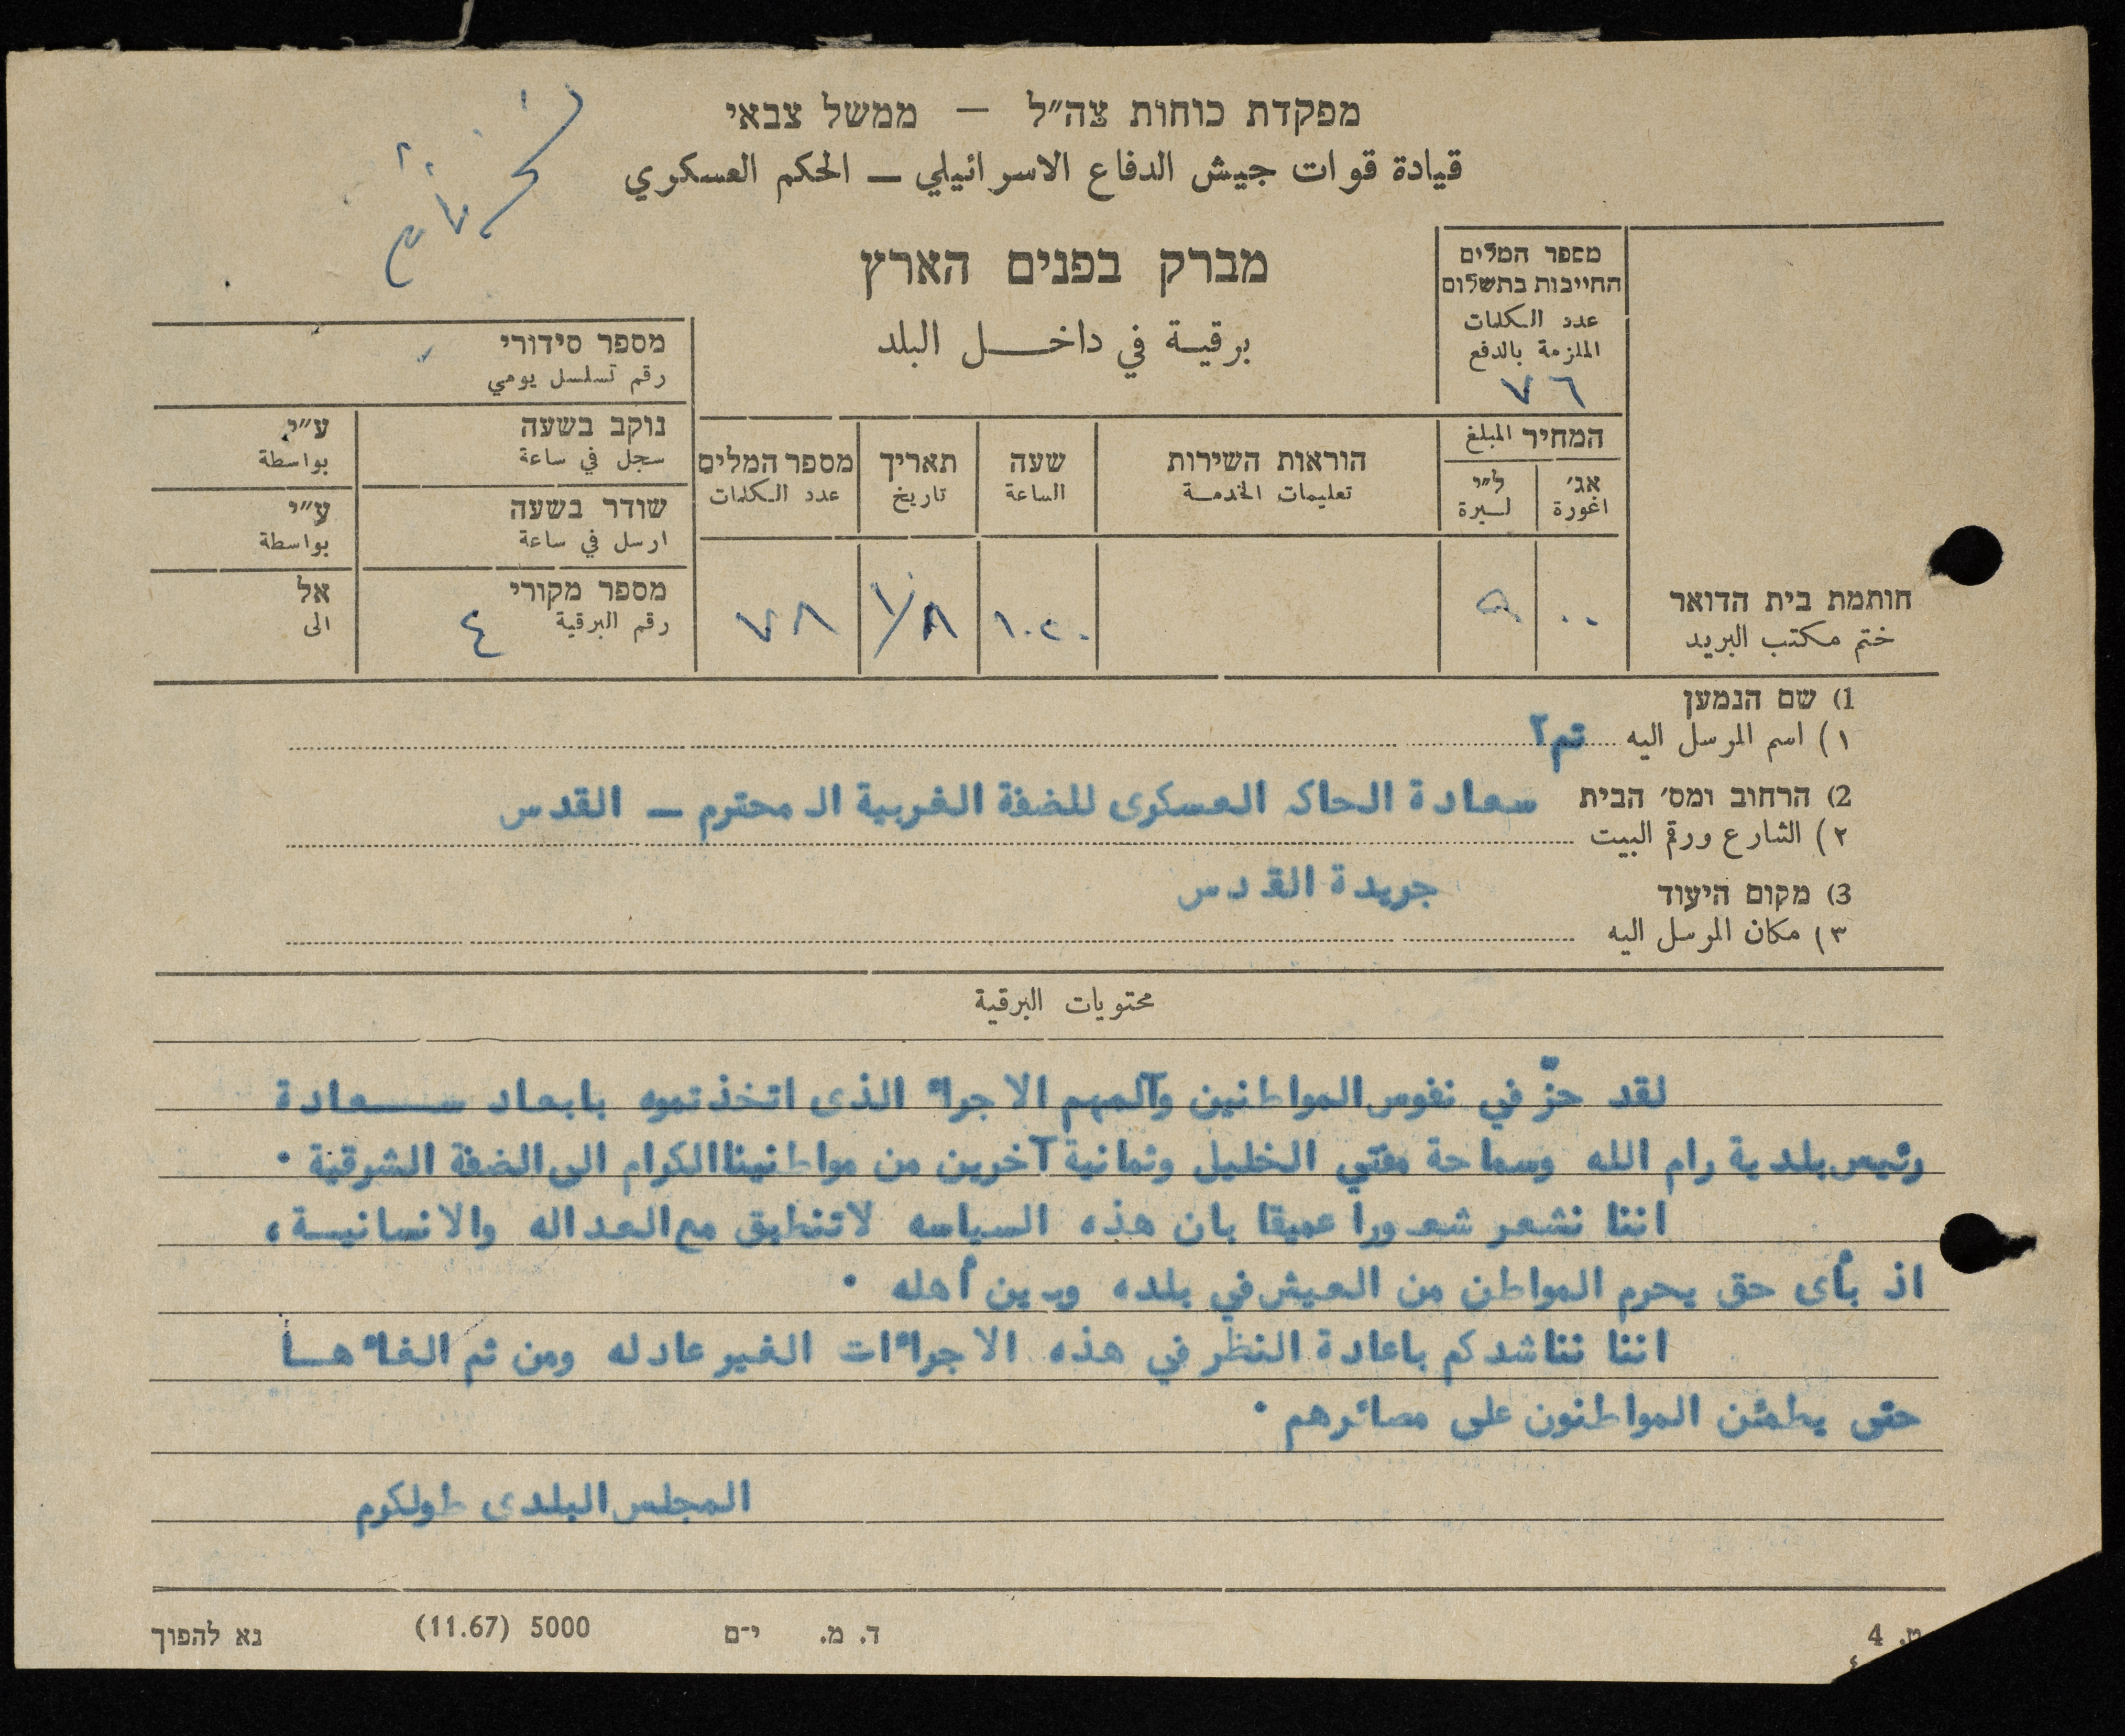 מפקדת כוחות צה״ל — ממשל צבאי
قيادة قوات جيش الدفاع الاسرائيلي — الحكم العسكري
מברק בפנים הארץ
برقية في داخل البلد
מספר המלים
החייבות בתשלום
عدد الكلمات
الملزمة بالدفع
٧٦
המחיר المبلغ
אג׳ ל״י
اغورة ليرة
הוראות השירות
تعليمات الخدمة
שעה
الساعة
תאריך
تاريخ
מספר המלים
عدد الكلمات
מספר סידורי
رقم تسلسل يومي
נוקב בשעה ע״י
سجل في ساعة بواسطة
שודר בשעה ע״י
ارسل في ساعة بواسطة
מספר מקורי אל
رقم البرقية ٤ الى
٠٠ ٥ ١٠٢٠ ١/٨ ٧٨
חותמת בית הדואר
ختم مكتب البريد
1) שם הנמען
١) اسم المرسل اليه تم٢
2) הרחוב ומס׳ הבית سعادة الحاكم العسكرى للضفة الغربية المحترم — القدس
٢) الشارع ورقم البيت
جريدة القدس
3) מקום היעוד
٣) مكان المرسل اليه
محتويات البرقية
لقد حزّ في نفوس المواطنين وآلمهم الاجراء الذى اتخذتموه بابعاد سعادة
رئيس بلدية رام الله وسماحة مفتي الخليل وثمانية آخرين من مواطنينا الكرام الى الضفة الشرقية ٠
اننا نشعر شعورا عميقا بان هذه السياسه لاتنطبق مع العداله والانسانيسة ،
اذ بأى حق يحرم المواطن من العيش في بلده وبين أهله ٠
اننا نناشدكم باعادة النظر في هذه الاجراءات الغير عادله ومن ثم الغاءها
حتى يطمئن المواطنون على مصائرهم ٠
المجلس البلدى طولكرم
ט. 4
ד. מ. י־ם 5000 (11.67) נא להפוך